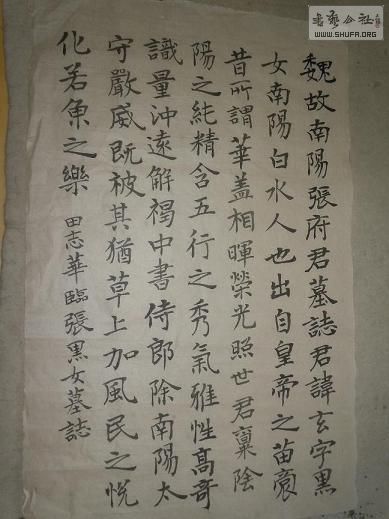 魏故南陽張府君墓誌君諱玄字黑
女南陽白水人也出自皇帝之苗裔
昔所謂華蓋相暉榮光照世君稟陰
陽之純精含五行之秀氣雅性高奇
識量沖遠解褐中書侍郎除南陽太
守嚴威既被其猶草上加風民之悅
化若魚之樂 田志華臨張黑女墓誌
書藝公社
WWW.SHUFA.ORG